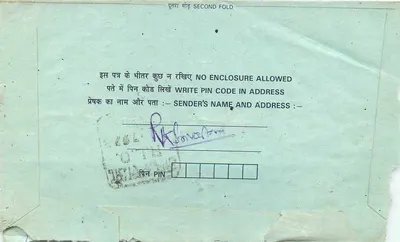 दूसरा मोड़ SECOND FOLD
इस पत्र के भीतर कुछ न रखिए NO ENCLOSURE ALLOWED
पते में पिन कोड लिखें WRITE PIN CODE IN ADDRESS
प्रेषक का नाम और पता :- SENDER'S NAME AND ADDRESS :-
पिन PIN